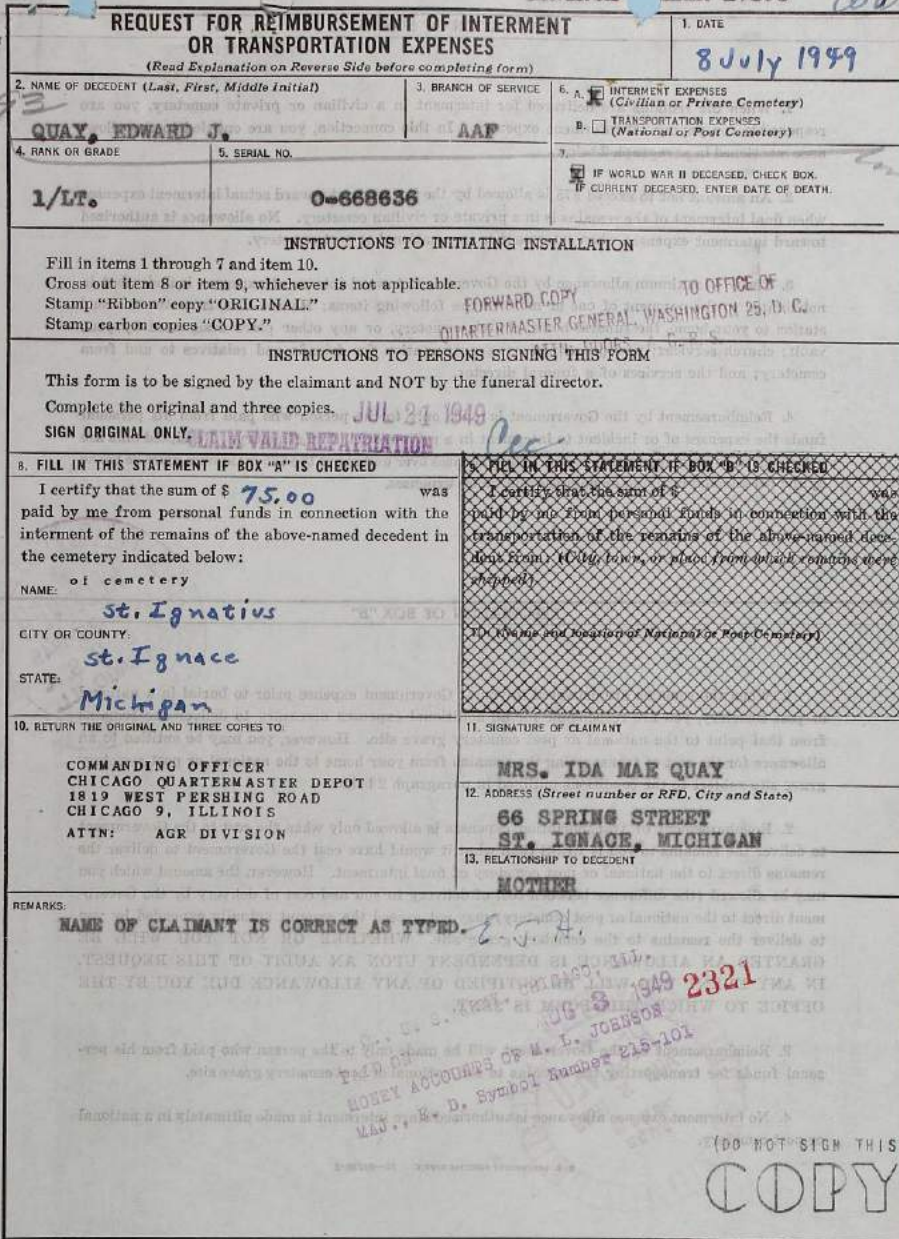 REQUEST FOR REIMBURSEMENT OF INTERMENT
OR TRANSPORTATION EXPENSES
(Read Explanation on Reverse Side before completing form)
1. DATE
8 July 1949
2. NAME OF DECEDENT (Last, First, Middle Initial)
QUAY, EDWARD J.
3. BRANCH OF SERVICE
AAF
6. A. INTERMENT EXPENSES
(Civilian or Private Cemetery)
B. TRANSPORTATION EXPENSES
(National or Post Cemetery)
4. RANK OR GRADE
1/LT.
5. SERIAL NO.
O-668636
7.
IF WORLD WAR II DECEASED, CHECK BOX.
IF CURRENT DECEASED, ENTER DATE OF DEATH.
INSTRUCTIONS TO INITIATING INSTALLATION
Fill in items 1 through 7 and item 10.
Cross out item 8 or item 9, whichever is not applicable.
Stamp "Ribbon" copy "ORIGINAL."
Stamp carbon copies "COPY."
FORWARD COPY TO OFFICE OF
QUARTERMASTER GENERAL, WASHINGTON 25, D. C.
INSTRUCTIONS TO PERSONS SIGNING THIS FORM
This form is to be signed by the claimant and NOT by the funeral director.
Complete the original and three copies. JUL 21 1949
SIGN ORIGINAL ONLY. CLAIM VALID REPATRIATION
8. FILL IN THIS STATEMENT IF BOX "A" IS CHECKED
I certify that the sum of $ 75.00 was
paid by me from personal funds in connection with the
interment of the remains of the above-named decedent in
the cemetery indicated below:
of cemetery
NAME:
St. Ignatius
CITY OR COUNTY:
St. Ignace
STATE:
Michigan
9. FILL IN THIS STATEMENT IF BOX "B" IS CHECKED
I certify that the sum of $ was
paid by me from personal funds in connection with the
transportation of the remains of the above-named dece-
dent from: (City, town, or place from which remains were
shipped)
TO: (Name and location of National or Post Cemetery)
10. RETURN THE ORIGINAL AND THREE COPIES TO:
COMMANDING OFFICER
CHICAGO QUARTERMASTER DEPOT
1819 WEST PERSHING ROAD
CHICAGO 9, ILLINOIS
ATTN: AGR DIVISION
11. SIGNATURE OF CLAIMANT
MRS. IDA MAE QUAY
12. ADDRESS (Street number or RFD, City and State)
66 SPRING STREET
ST. IGNACE, MICHIGAN
13. RELATIONSHIP TO DECEDENT
MOTHER
REMARKS:
NAME OF CLAIMANT IS CORRECT AS TYPED. E. J. H.
2321
3 1949
MONEY ACCOUNTS OF M. L. JOHNSON
MAJ., F. D. Symbol Number 215-101
(DO NOT SIGN THIS
COPY